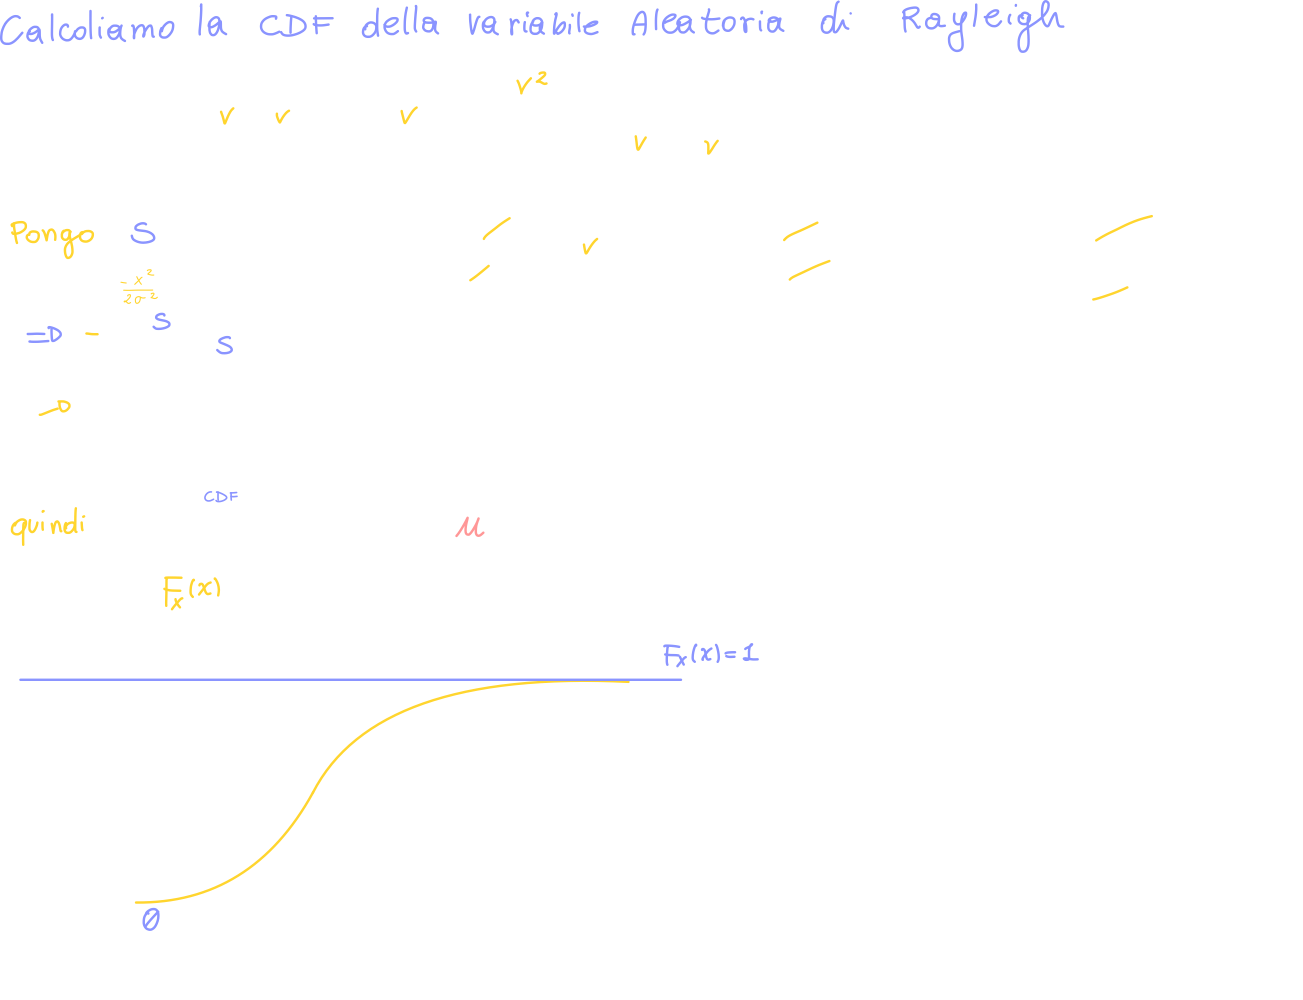 Calcoliamo la CDF della variabile Aleatoria di Rayleigh
v²
v v v
v v
Pongo S
v
-x²/2σ²
=D - S
S
CDF
quindi μ
Fx(x)
Fx(x)=1
0